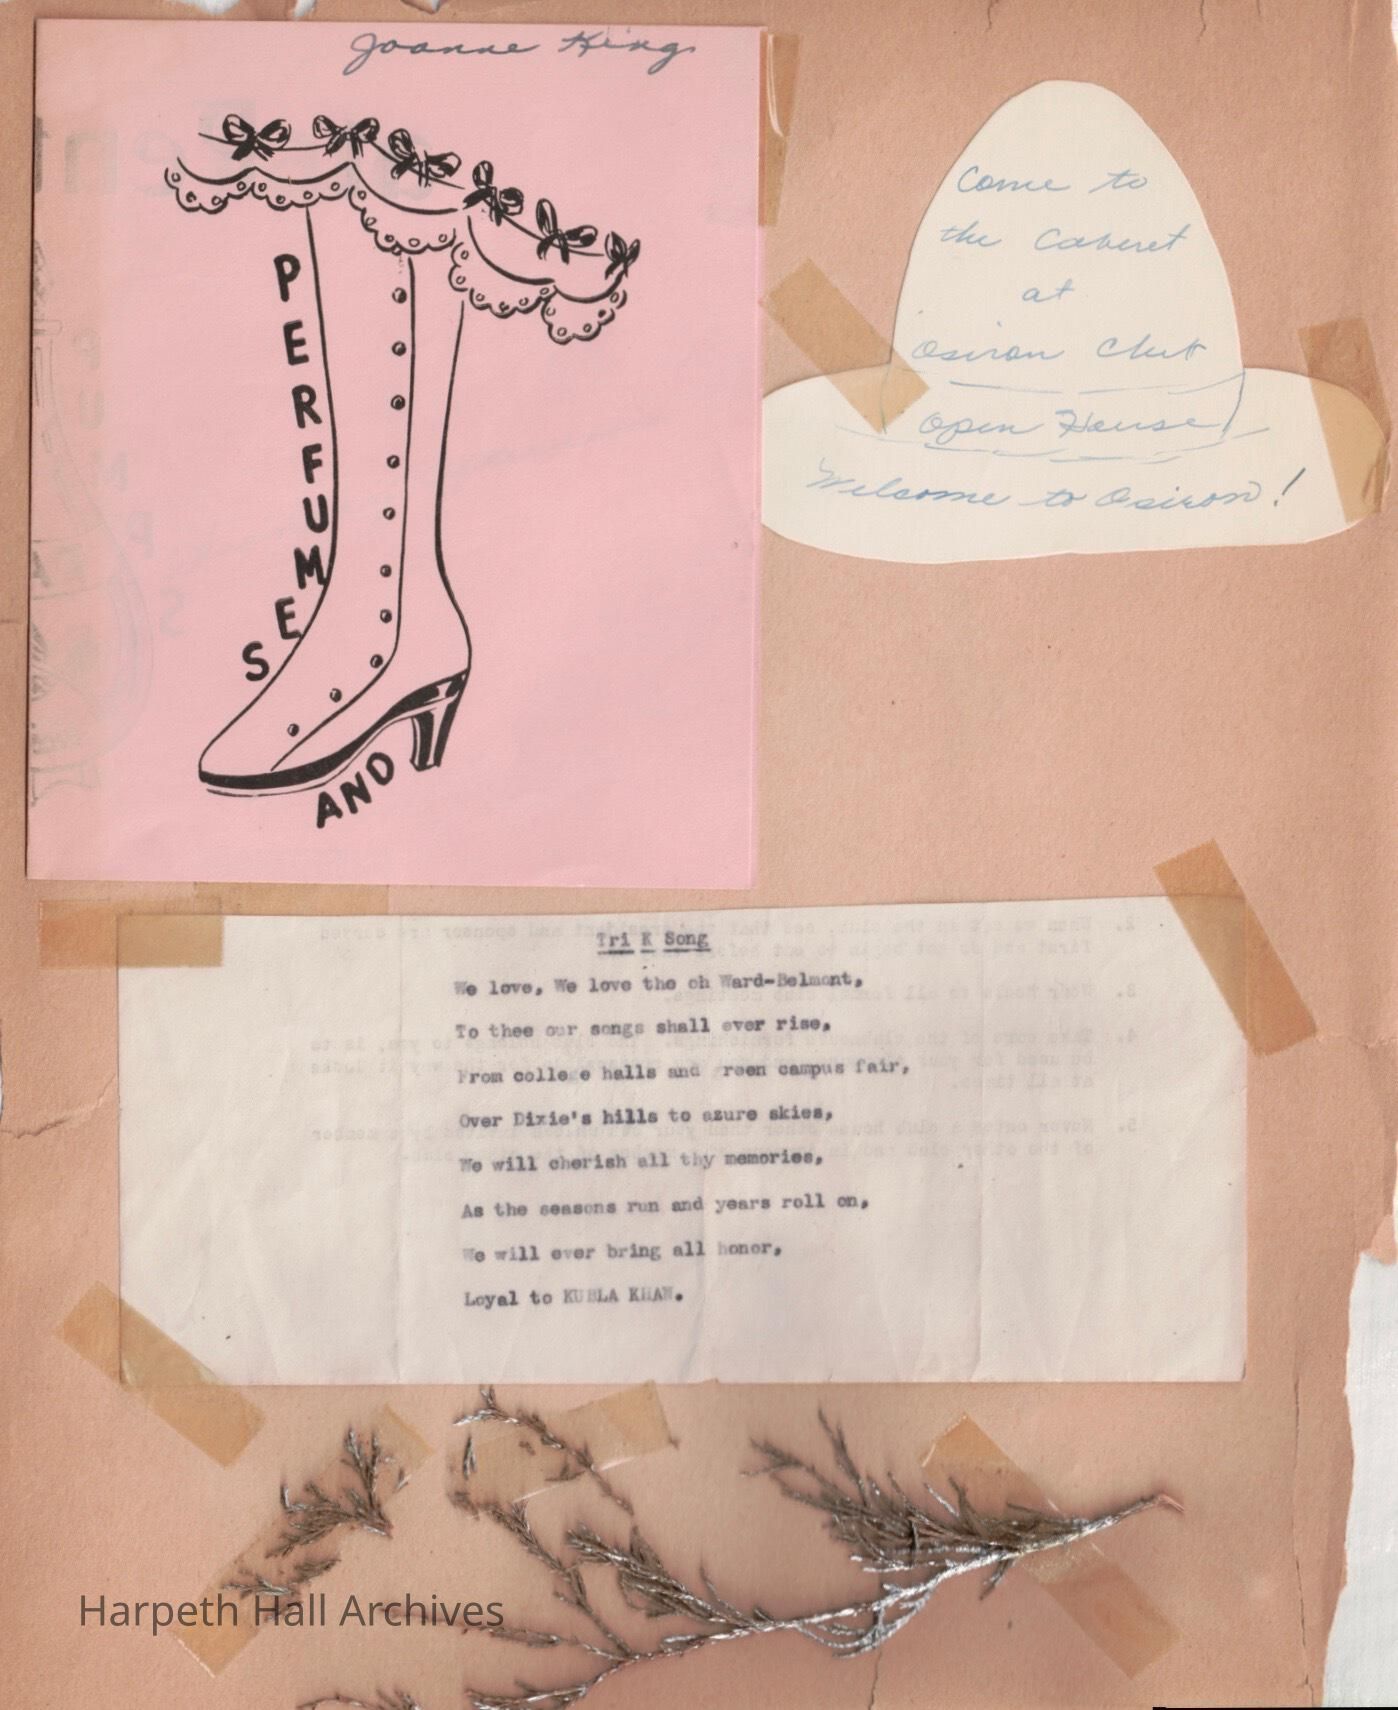 Joanne King
PERFUMES
AND
Come to
the Caberet
at
Osiron Club
Open House
Welcome to Osiron!
Tri K Song
We love, We love the oh Ward-Belmont,
To thee our songs shall ever rise,
From college halls and green campus fair,
Over Dixie's hills to azure skies,
We will cherish all thy memories,
As the seasons run and years roll on,
We will ever bring all honor,
Loyal to KUBLA KHAN.
Harpeth Hall Archives